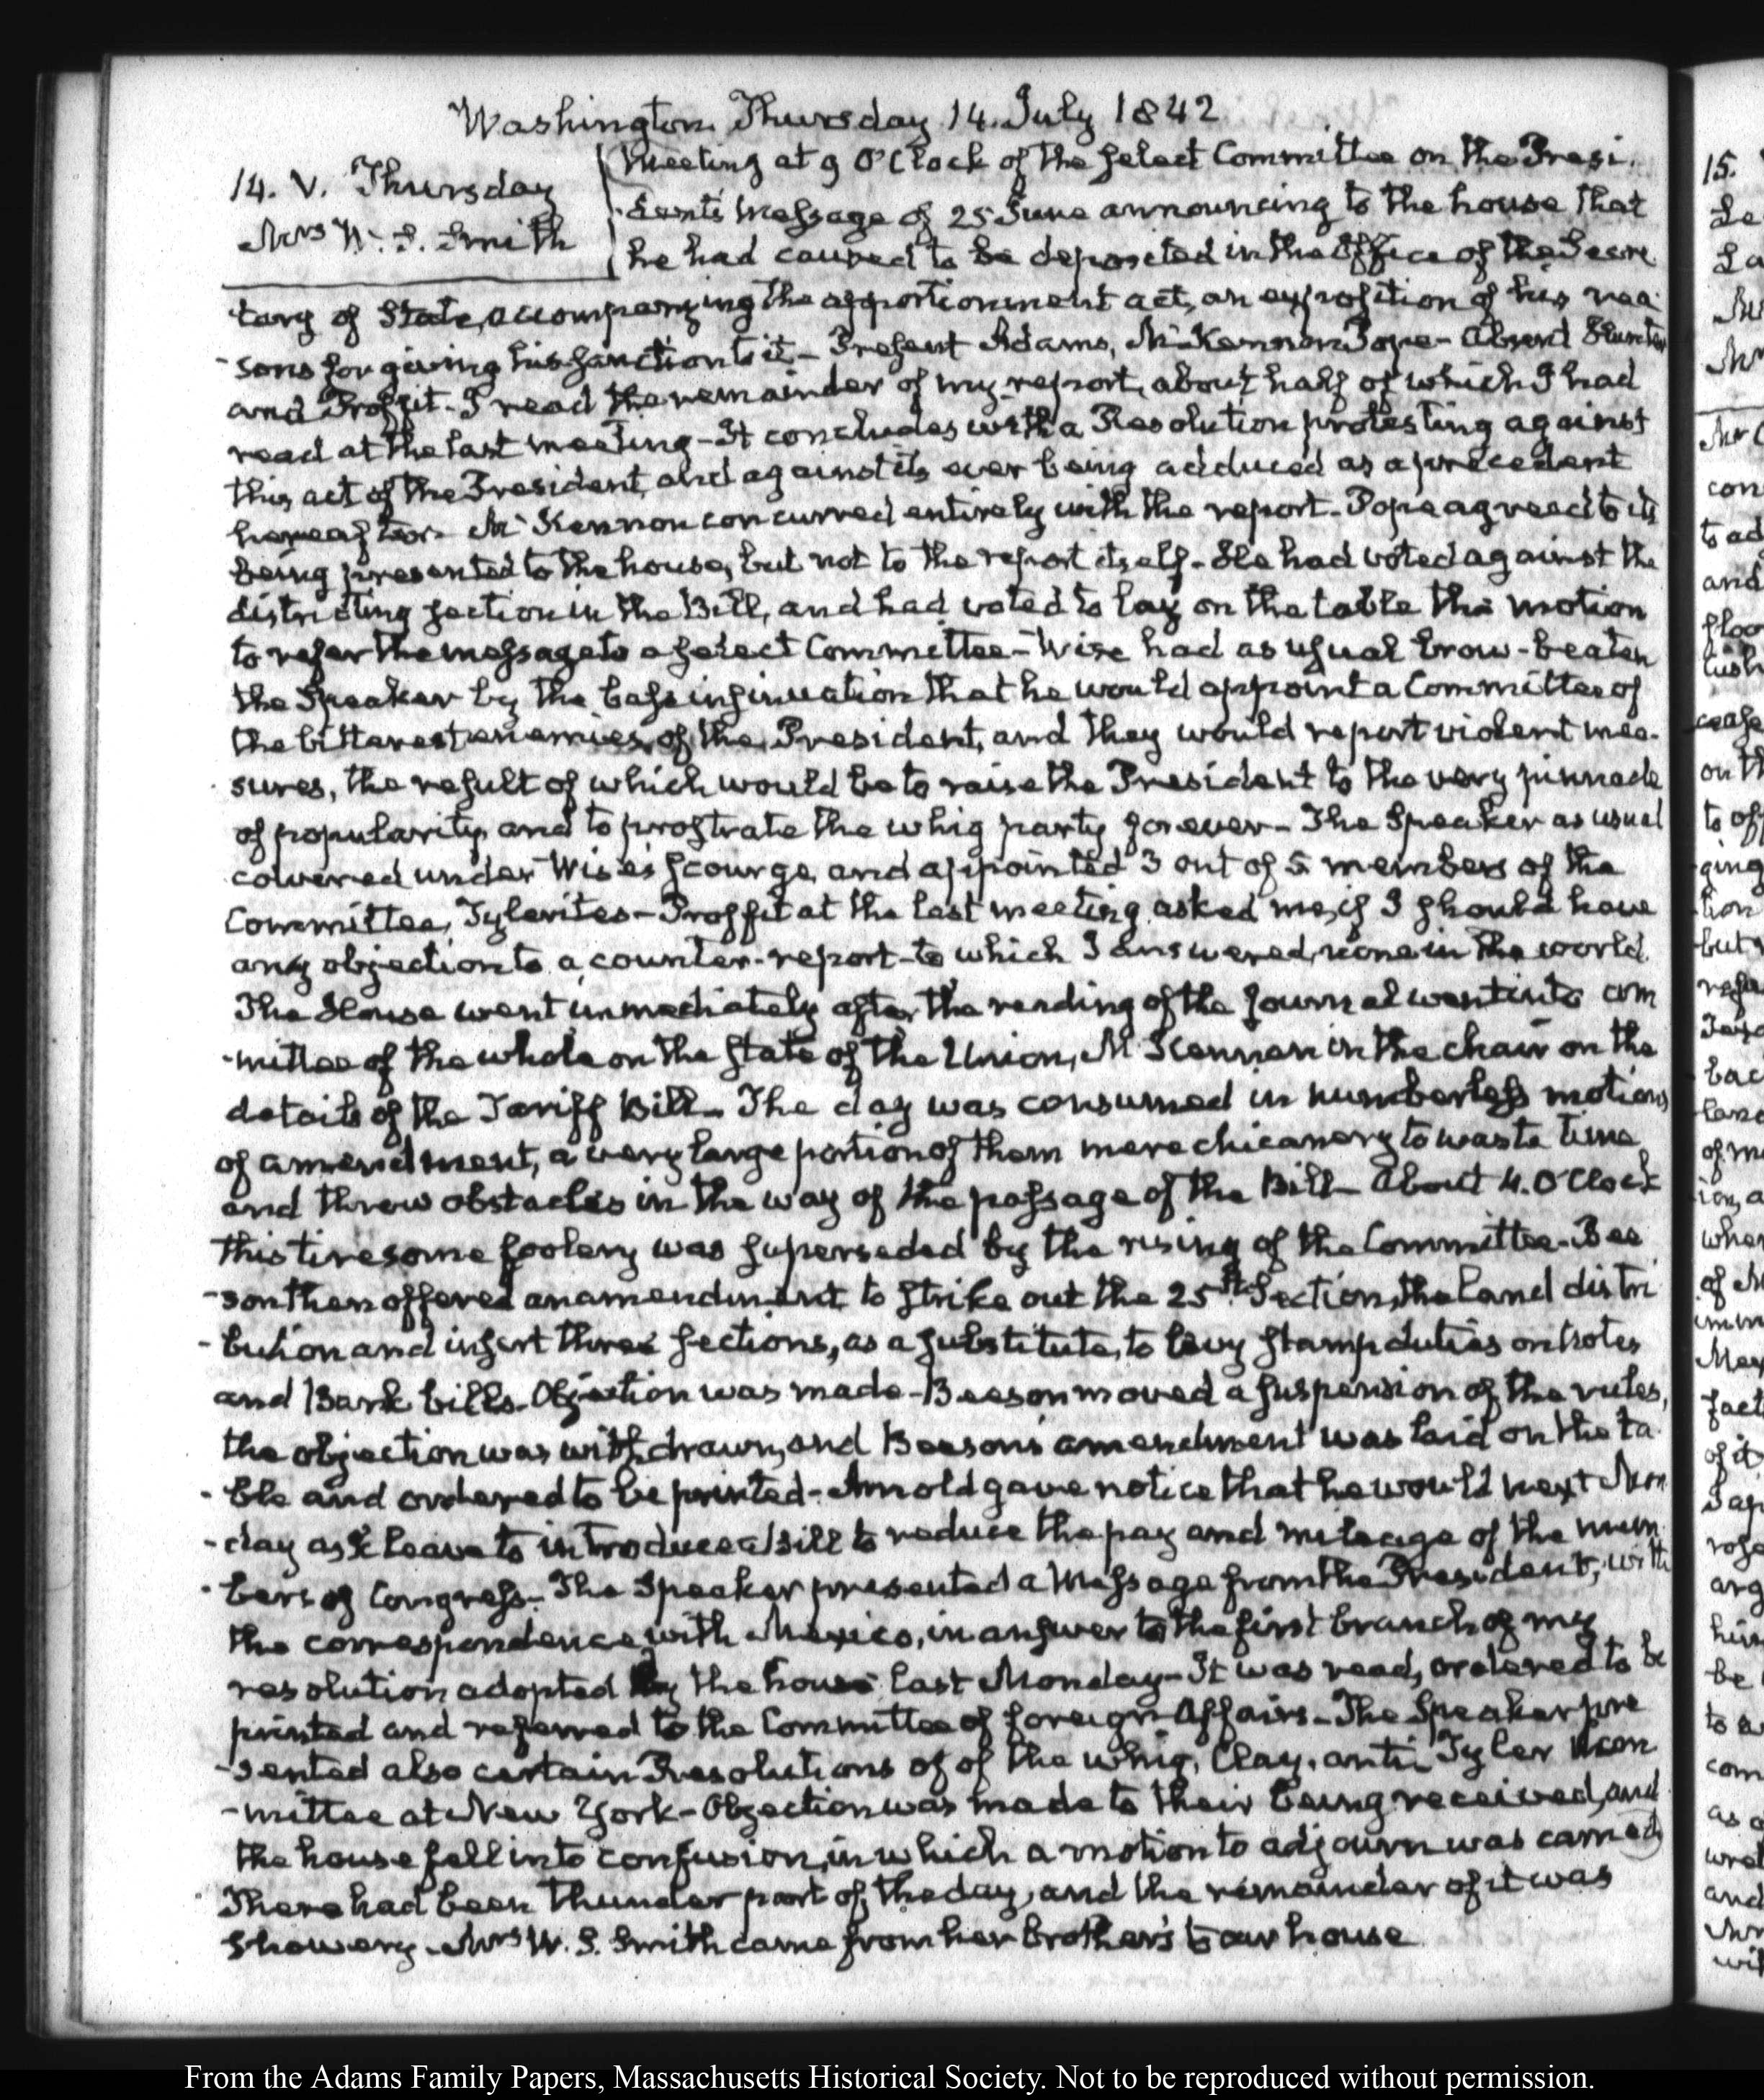 Washington Thursday 14. July 1842
14. V. Thursday
Mrs W. S. Smith
Meeting at 9 O'Clock of the select Committee on the Presi-
-dent's Message of 25 June announcing to the house that
he had caused to be deposited in the Office of the Secre
tary of State, accompanying the apportionment act, an exposition of his rea-
-sons for giving his sanction to it- Present Adams, McKennan Pope- Absent Hunter
and Proffit- I read the remainder of my report, about half of which I had
read at the last meeting- It concludes with a Resolution protesting against
this act of the President, and against its ever being adduced as a precedent
hereafter- McKennon concurred entirely with the report- Pope agreed to its
being presented to the house, but not to the report itself- He had voted against the
districting section in the Bill, and had voted to lay on the table the motion
to refer the message to a select Committee- Wise had as usual brow-beaten
the Speaker by the base insinuation that he would appoint a Committee of
the bitterest enemies of the President, and they would report violent mea-
sures, the result of which would be to raise the President to the very pinnacle
of popularity, and to prostrate the whig party forever- The Speaker as usual
cowered under Wise's scourge, and appointed 3 out of 5 members of the
Committee, Tylerites- Proffit at the last meeting asked me, if I should have
any objection to a counter-report- to which I answered, none in the world.
The House went immediately after the reading of the journal went into com
-mittee of the whole on the state of the Union, McKennan in the chair on the
details of the Tariff Bill- The day was consumed in numberless motions
of amendment, a very large portion of them mere chicanery to waste time
and throw obstacles in the way of the passage of the Bill- About 4. O'Clock
this tiresome foolery was superseded by the rising of the Committee- Bee
-son then offered an amendment to strike out the 25th Section, the land distri
-bution and insert three sections, as a substitute, to levy stamp duties on notes
and Bank bills- Objection was made- Beeson moved a suspension of the rules,
the objection was withdrawn, and Beeson's amendment was laid on the ta
-ble and ordered to be printed- Arnold gave notice that he would next Mon
-day ask leave to introduce a Bill to reduce the pay and mileage of the mem
-bers of Congress- The Speaker presented a Message from the President, with
the correspondence with Mexico, in answer to the first branch of my
resolution adopted by the house last Monday- It was read, ordered to be
printed and referred to the Committee of foreign Affairs- The Speaker pre
-sented also certain Resolutions of of the whig, Clay, anti Tyler Com
-mittee at New York- Objection was made to their being received, and
the house fell into confusion, in which a motion to adjourn was carried
There had been thunder part of the day, and the remainder of it was
showery- Mrs W. S. Smith came from her brother's to our house
From the Adams Family Papers, Massachusetts Historical Society. Not to be reproduced without permission.